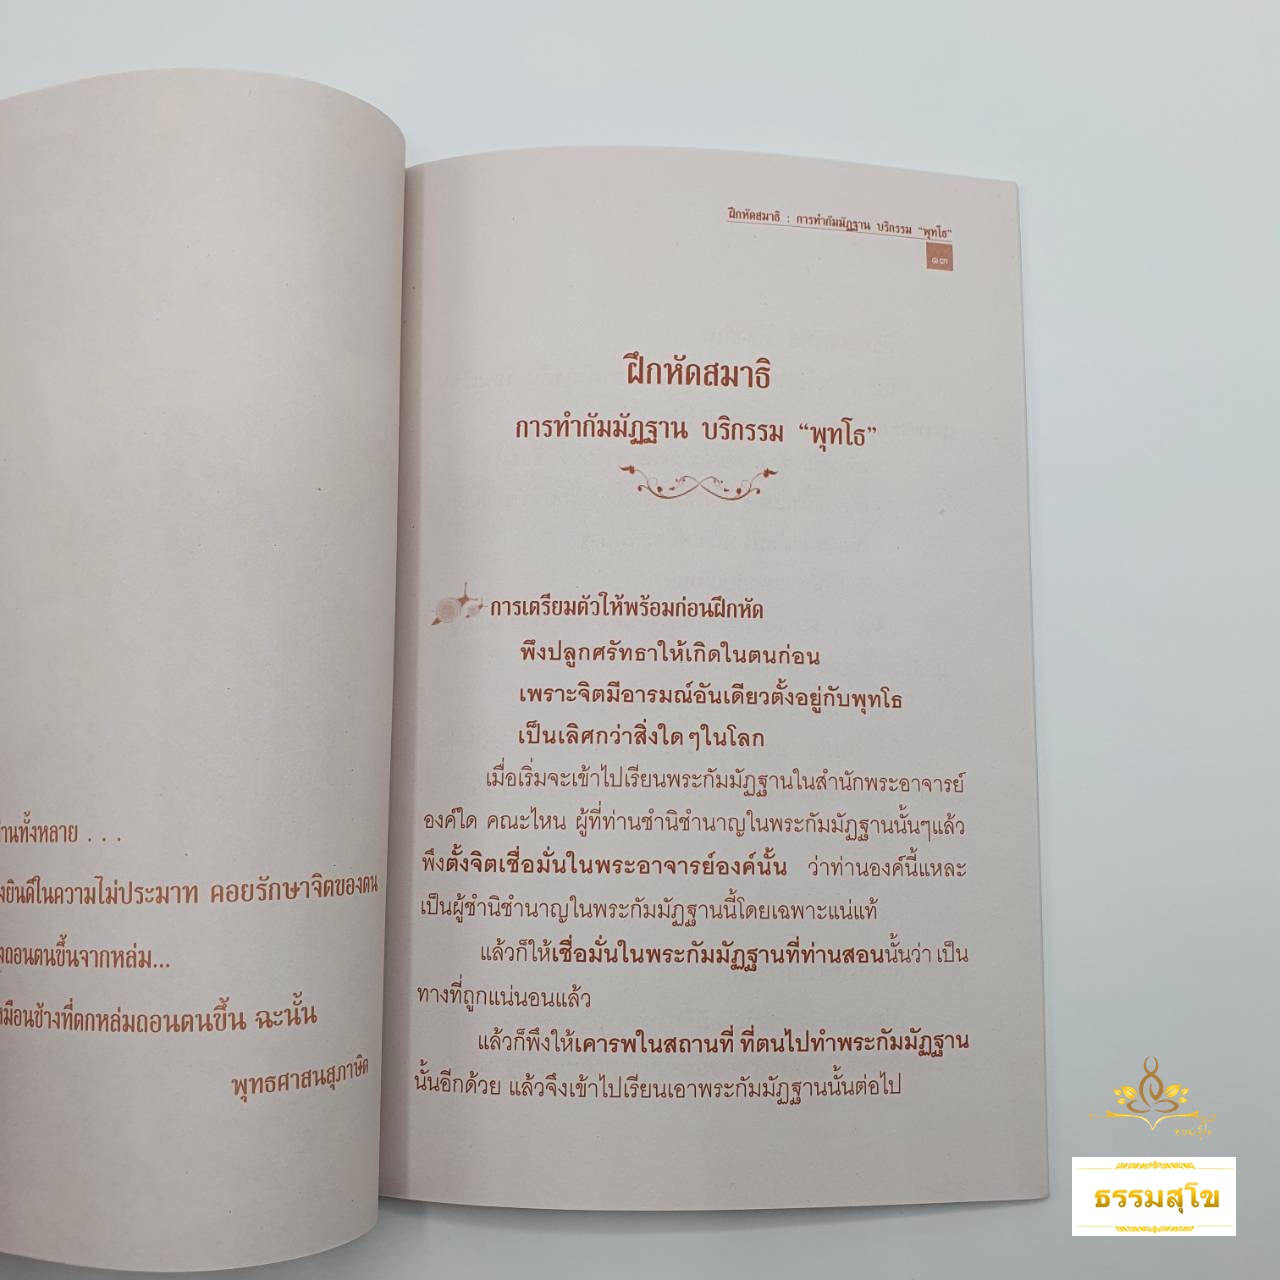 ่านทั้งหลาย . . .
งยินดีในความไม่ประมาท คอยรักษาจิตของตน
งถอนตนขึ้นจากหล่ม...
หมือนช้างที่ตกหล่มถอนตนขึ้น ฉะนั้น
พุทธศาสนสุภาษิต
ฝึกหัดสมาธิ : การทำกัมมัฏฐาน บริกรรม “พุทโธ”
๑๓
ฝึกหัดสมาธิ
การทำกัมมัฏฐาน บริกรรม “พุทโธ”
การเตรียมตัวให้พร้อมก่อนฝึกหัด
พึงปลูกศรัทธาให้เกิดในตนก่อน
เพราะจิตมีอารมณ์อันเดียวตั้งอยู่กับพุทโธ
เป็นเลิศกว่าสิ่งใดๆในโลก
เมื่อเริ่มจะเข้าไปเรียนพระกัมมัฏฐานในสำนักพระอาจารย์
องค์ใด คณะไหน ผู้ที่ท่านชำนิชำนาญในพระกัมมัฏฐานนั้นๆแล้ว
พึงตั้งจิตเชื่อมั่นในพระอาจารย์องค์นั้น ว่าท่านองค์นี้แหละ
เป็นผู้ชำนิชำนาญในพระกัมมัฏฐานนี้โดยเฉพาะแน่แท้
แล้วก็ให้เชื่อมั่นในพระกัมมัฏฐานที่ท่านสอนนั้นว่า เป็น
ทางที่ถูกแน่นอนแล้ว
แล้วก็พึงให้เคารพในสถานที่ ที่ตนไปทำพระกัมมัฏฐาน
นั้นอีกด้วย แล้วจึงเข้าไปเรียนเอาพระกัมมัฏฐานนั้นต่อไป
ธรรมสุโข